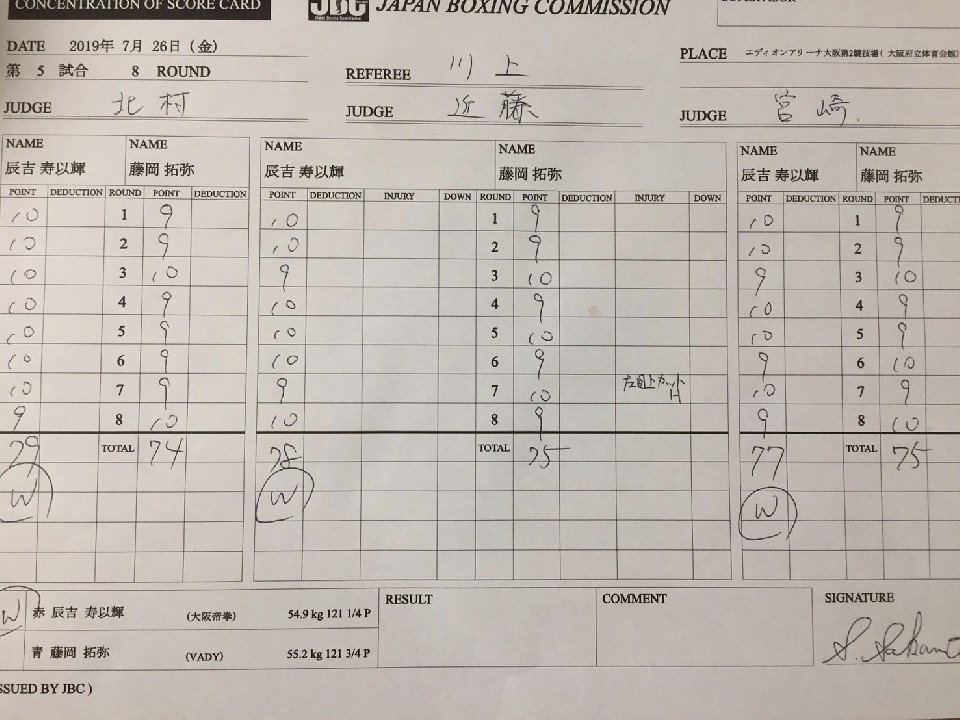 CONCENTRATION OF SCORE CARD
JBC JAPAN BOXING COMMISSION
DATE 2019年 7月 26日（金）
第 5 試合 8 ROUND
REFEREE 川上
PLACE エディオンアリーナ大阪第2競技場( 大阪府立体育会館)
JUDGE 北村
JUDGE 近藤
JUDGE 宮崎
NAME NAME NAME NAME NAME NAME
辰吉 寿以輝 藤岡 拓弥 辰吉 寿以輝 藤岡 拓弥 辰吉 寿以輝 藤岡 拓弥
POINT DEDUCTION ROUND POINT DEDUCTION POINT DEDUCTION INJURY DOWN ROUND POINT DEDUCTION INJURY DOWN POINT DEDUCTION ROUND POINT DEDUCT
10 1 9 10 1 9 10 1 9
10 2 9 10 2 9 10 2 9
10 3 10 9 3 10 9 3 10
10 4 9 10 4 9 10 4 9
10 5 9 10 5 10 10 5 9
10 6 9 10 6 9 9 6 10
10 7 9 9 7 10 左目上カット H 10 7 9
9 8 10 10 8 9 9 8 10
79 TOTAL 74 78 TOTAL 75 77 TOTAL 75
W W W
W 赤 辰吉 寿以輝 (大阪帝拳) 54.9 kg 121 1/4 P
青 藤岡 拓弥 (VADY) 55.2 kg 121 3/4 P
RESULT
COMMENT
SIGNATURE
SSUED BY JBC )